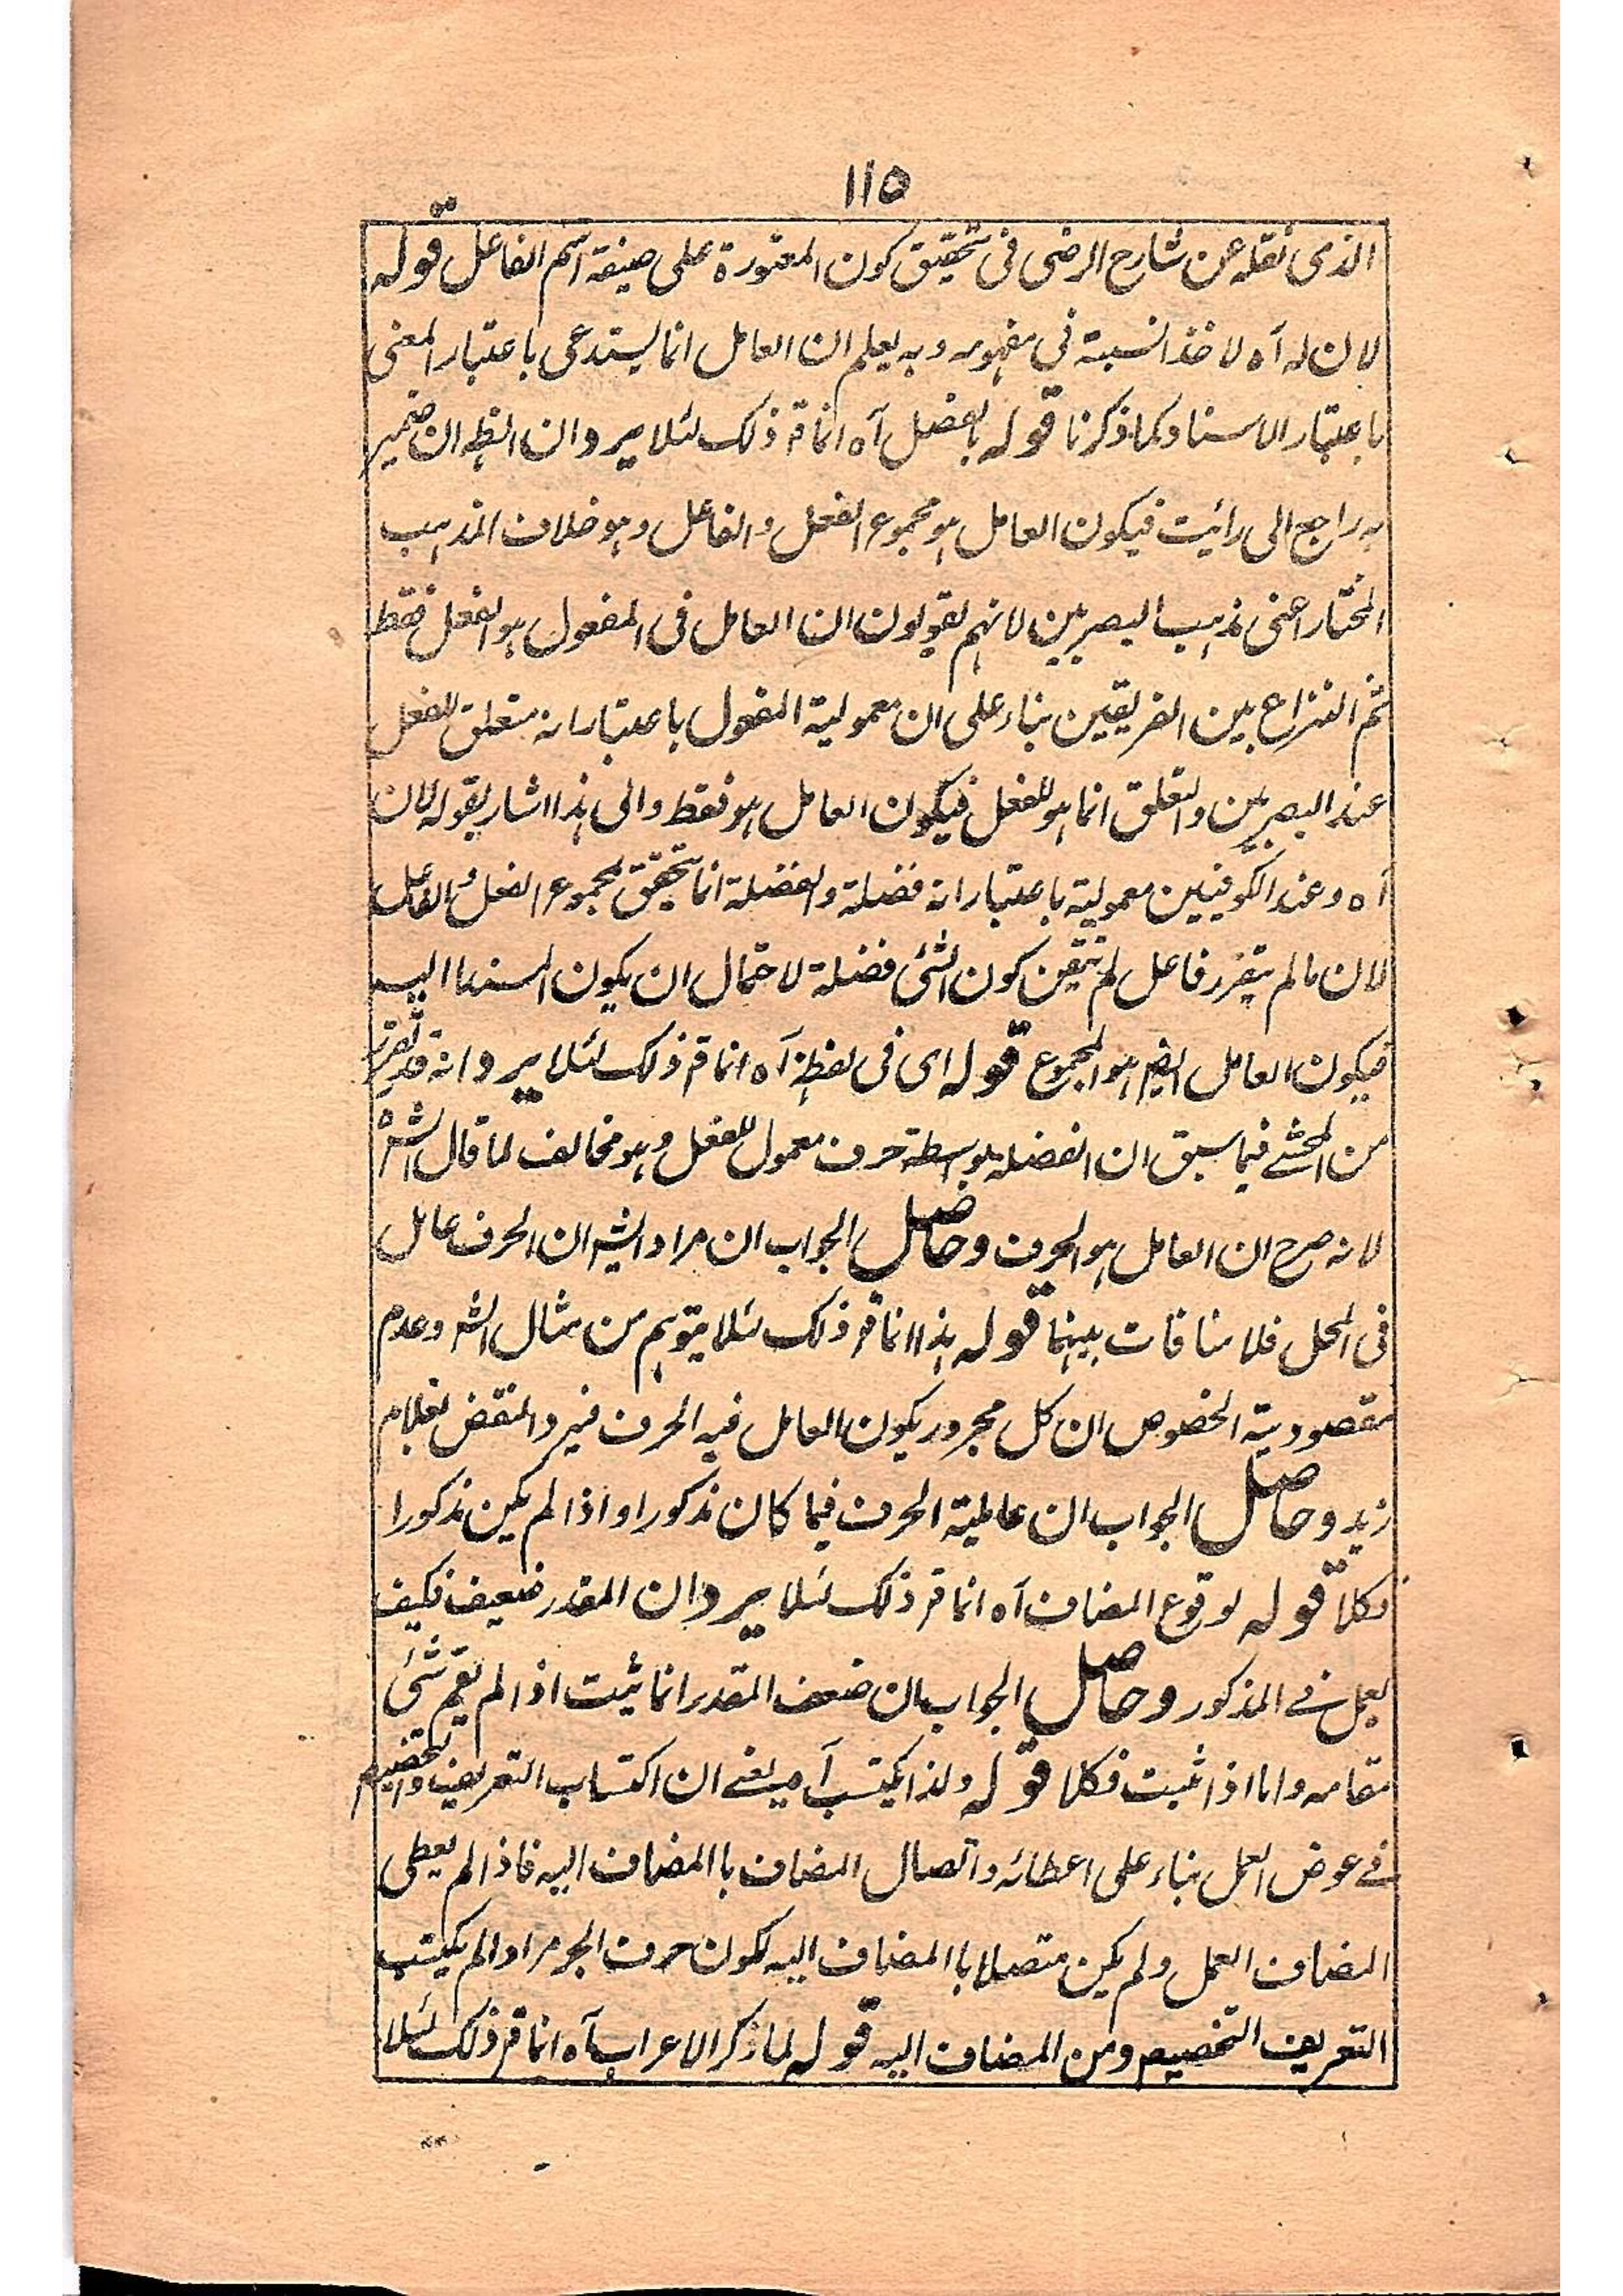 ١١٥
الذى نقله عن شارح الرضى فى تحقيق كون المعتورة على صيغة اسم الفاعل قوله
لان له آه لاخذ النسبة فى مفهومه وبه يعلم ان العامل انما يستدعى باعتبار المعنى
باعتبار الاسناد كما ذكرنا قوله بالفعل آه انما قر ذلك لئلا يرد ان الظه ان ضمير
به راجع الى رائيت فيكون العامل هو مجموع الفعل والفاعل وهو خلاف المذهب
المختار اعنى مذهب البصريين لانهم يقولون ان العامل فى المفعول هو الفعل فقط
ثم النزاع بين الفريقين بناء على ان معمولية المفعول باعتبار انه متعلق للفعل
عند البصريين والتعلق انما هو للفعل فيكون العامل هو فقط والى هذا اشار بقوله لان
آه وعند الكوفيين معمولية باعتبار انه فضلة والفضلة انما يتحقق لمجموع الفعل والفاعل
لان مالم يتقرر فاعل لم يتيقن كون الشئ فضلة لاحتمال ان يكون المسندا اليه
فيكون العامل ايضم هو المجموع قوله اى فى لفظه آه انما قر ذلك لئلا يرد انه قد تقرر
من المحشے فيما سبق ان الفضلة بواسطة حرف معمول للفعل وهو مخالف لما قال الشه
لانه صرح ان العامل هو الحرف وحاصل الجواب ان مراد الشه ان الحرف عامل
فى المحل فلا منافات بينهما قوله هذا انما قر ذلك لئلا يتوهم من مثال الشه وعدم
مقصودية الخصوص ان كل مجرور يكون العامل فيه الحرف فيرد النقض بغلام
زيد وحاصل الجواب ان عاملية الحرف فيما كان مذكورا واذا لم يكن مذكورا
فكلا قوله لوقوع المضاف آه انما قر ذلك لئلا يرد ان المقدر ضعيف فكيف
يعمل فے المذكور وحاصل الجواب ان ضعف المقدر انما يثبت اذا لم يقم شئ
مقامه واما اذا ثبت فكلا قوله ولذا يكتسب آه يعنے ان اكتساب التعريف والتخصيص
فے عوض العمل بناء على اعطائه واتصال المضاف با المضاف اليه فاذا لم يعطى
المضاف العمل ولم يكن متصلا با المضاف اليه لكون حرف الجر مرادا لم يكتسب
التعريف التخصيص ومن المضاف اليه قوله لما ذكر الاعراب آه انما قر ذلك لئلا